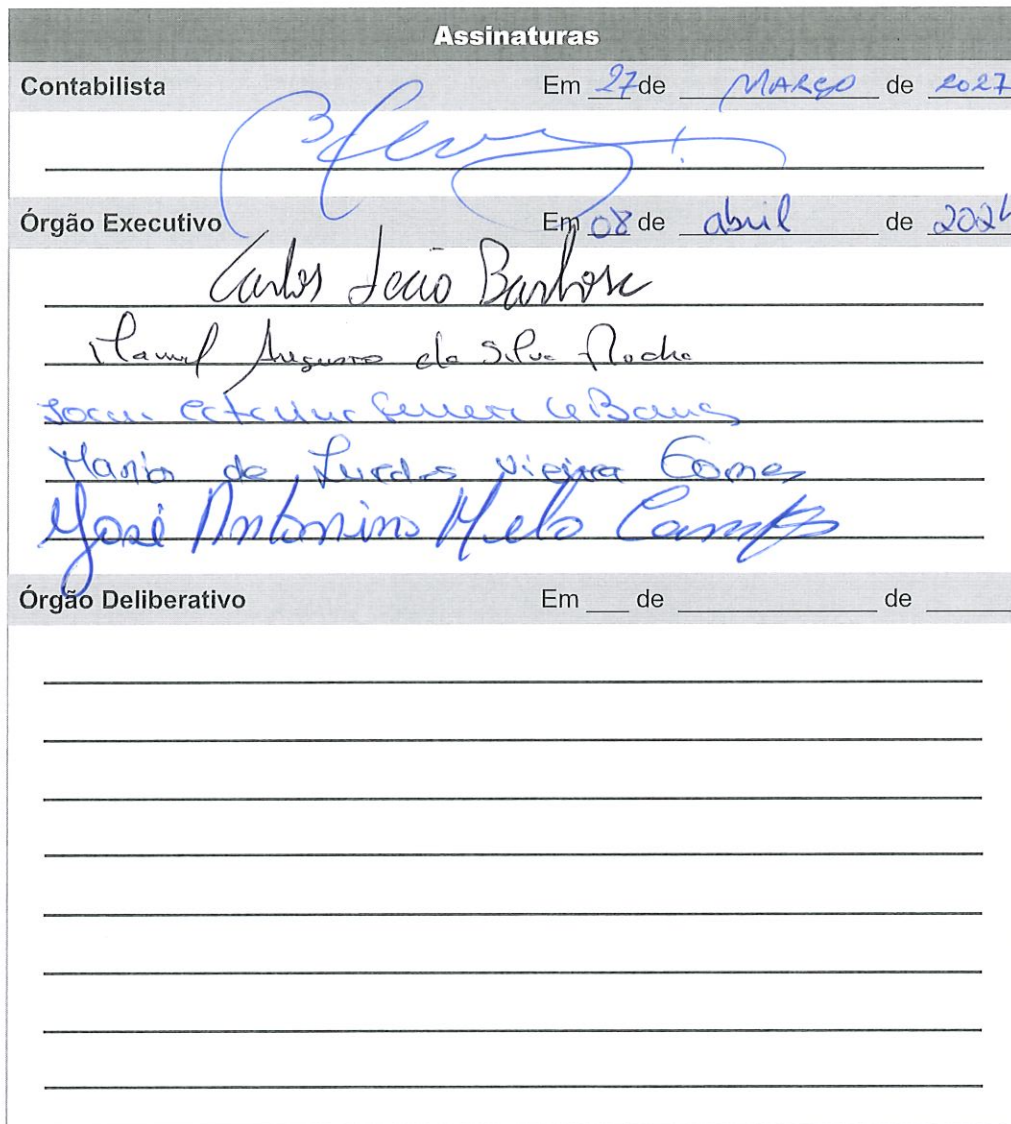 Assinaturas
Contabilista Em 27 de MARÇO de 2027
Órgão Executivo Em 08 de abril de 2024
Carlos João Barbosa
Manuel Augusto da Silva Rocha
Maria de Lurdes Vieira Gomes
José Antonino Melo Campos
Órgão Deliberativo Em ___ de ___ de ___